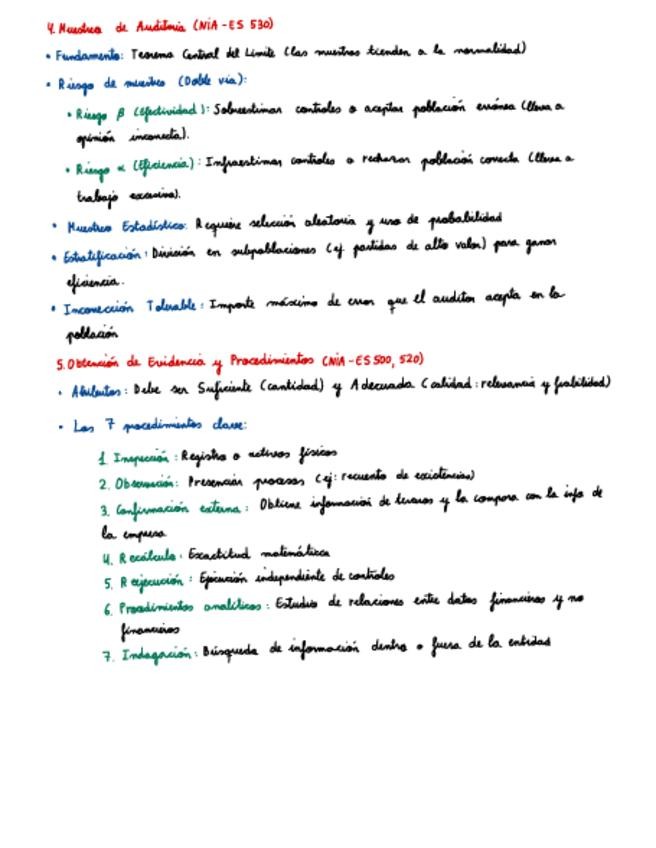 4. Muestreo de Auditoria (NIA-ES 530)
• Fundamento: Teorema Central del Límite (las muestras tienden a la normalidad)
• Riesgo de muestreo (Doble vía):
• Riesgo β (Efectividad): Sobreestimar controles o aceptar población errónea (lleva a
opinión incorrecta).
• Riesgo α (Eficiencia): Infraestimar controles o rechazar población correcta (lleva a
trabajo excesivo).
• Muestreo Estadístico: Requiere selección aleatoria y uso de probabilidad
• Estratificación: División en subpoblaciones (ej. partidas de alto valor) para ganar
eficiencia.
• Incorrección Tolerable: Importe máximo de error que el auditor acepta en la
población
5. Obtención de Evidencia y Procedimientos (NIA-ES 500, 520)
• Atributos: Debe ser Suficiente (cantidad) y Adecuada (calidad: relevancia y fiabilidad)
• Los 7 procedimientos clave:
1. Inspección: Registro o activos físicos
2. Observación: Presenciar procesos (ej: recuento de existencias)
3. Confirmación externa: Obtiene información de terceros y la compara con la info de
la empresa
4. Recálculo: Exactitud matemática
5. Reejecución: Ejecución independiente de controles
6. Procedimientos analíticos: Estudio de relaciones entre datos financieros y no
financieros
7. Indagación: Búsqueda de información dentro o fuera de la entidad